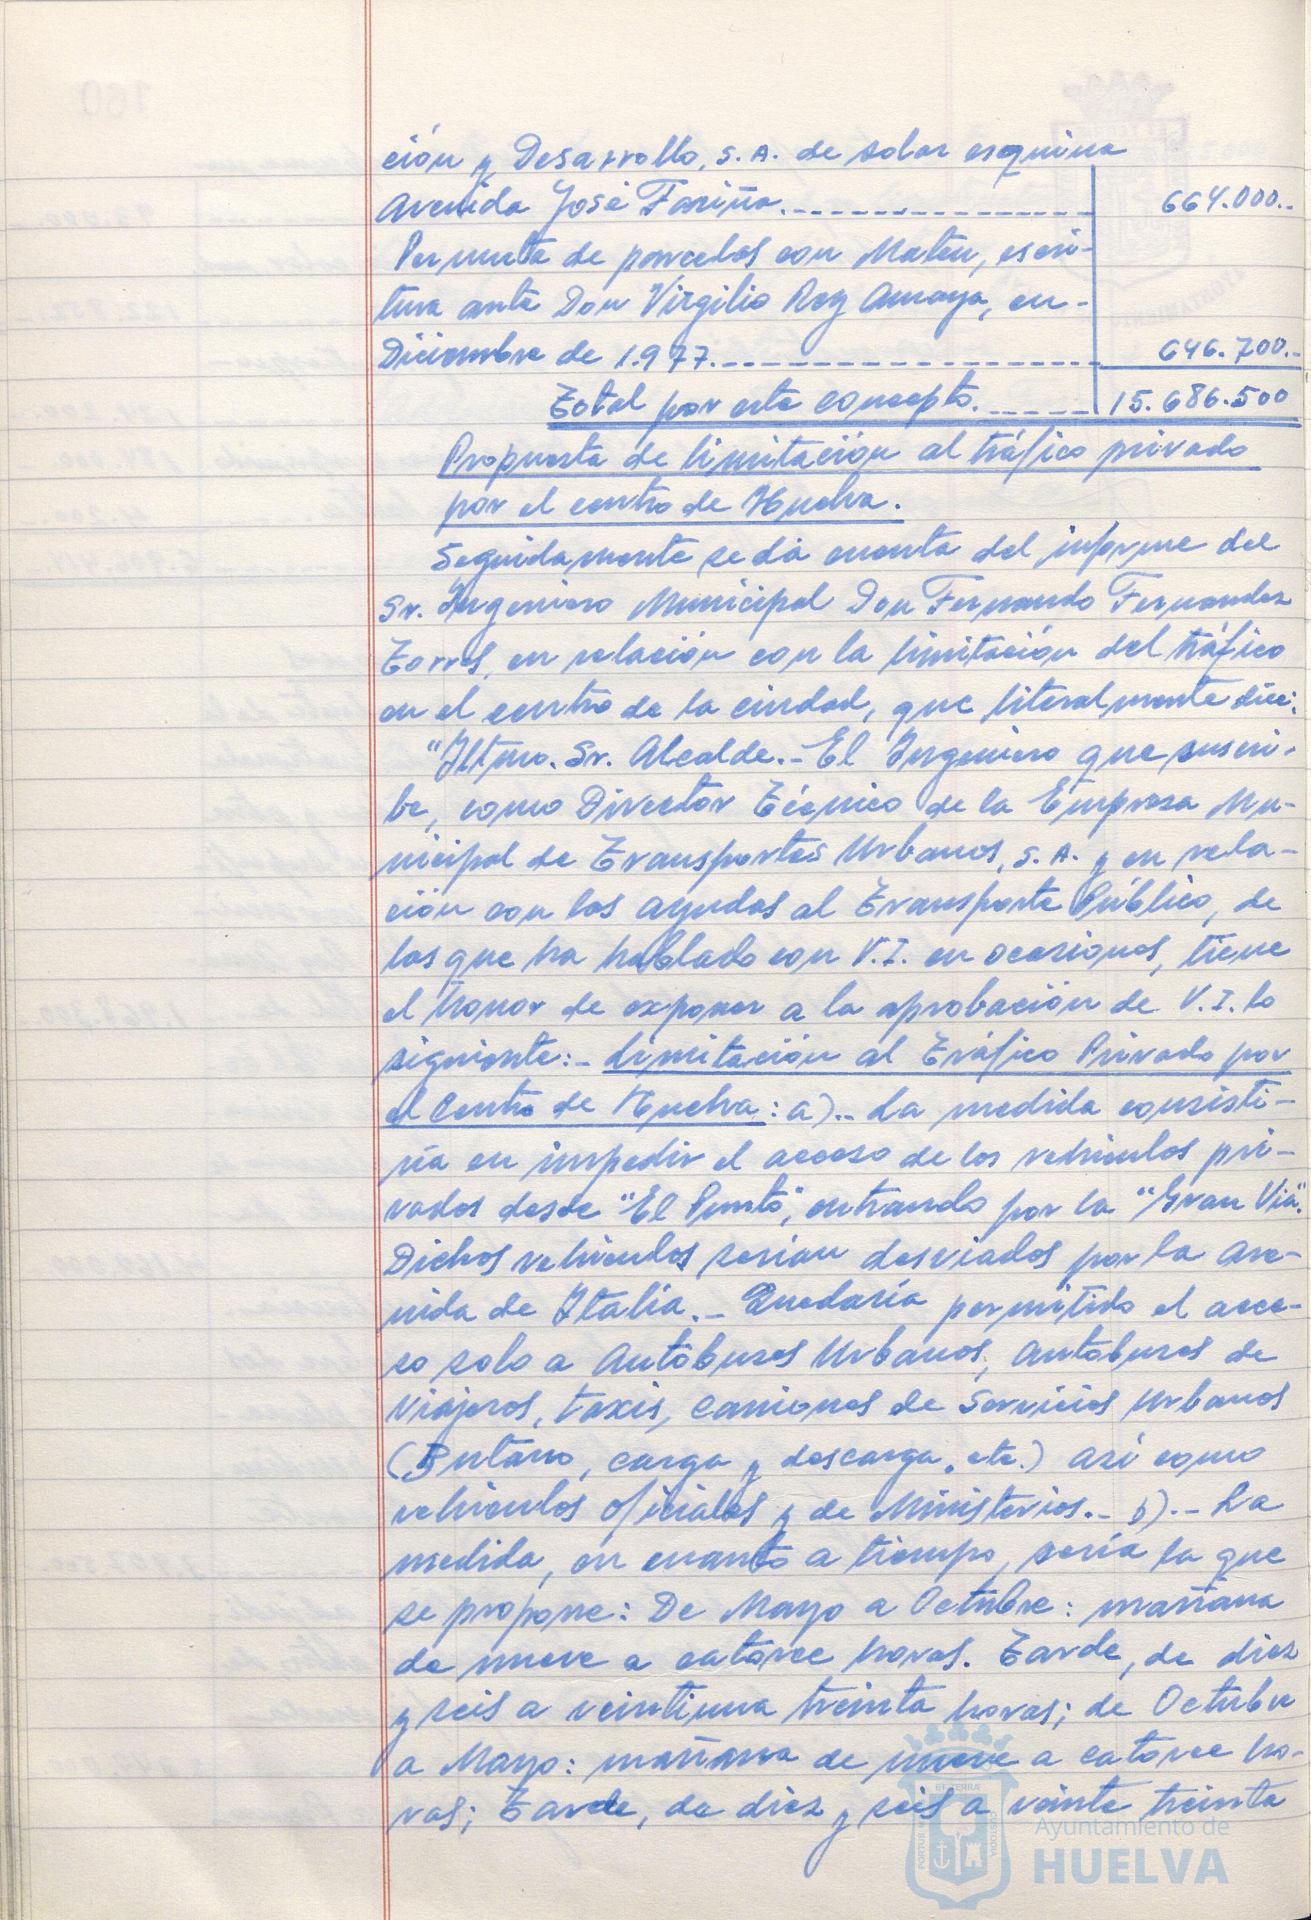 ción y Desarrollo, S.A. de solar esquina
Avenida José Fariña.------------- 664.000.-
Permuta de parcelas con Mateu, escri-
tura ante Don Virgilio Rey Amaya, en-
Diciembre de 1.977.-------------- 646.700.-
Total por este concepto.----- 15.686.500
Propuesta de limitación al tráfico privado
por el centro de Huelva.
Seguidamente se dá cuenta del informe del
Sr. Ingeniero Municipal Don Fernando Fernandez
Torres, en relación con la limitación del tráfico
en el centro de la ciudad, que literalmente dice:
"Iltmo. Sr. Alcalde.- El Ingeniero que suscri-
be, como Director Técnico de la Empresa Mu-
nicipal de Transportes Urbanos, S.A. y en rela-
ción con las ayudas al Transporte Público, de
las que ha hablado con V.I. en ocasiones, tiene
el honor de exponer a la aprobación de V.I. lo
siguiente:- Limitación al Tráfico Privado por
el Centro de Huelva: a).- La medida consisti-
ría en impedir el acceso de los vehículos pri-
vados desde "El Punto", entrando por la "Gran Vía".
Dichos vehículos serían desviados por la Ave-
nida de Italia.- Quedaría permitido el acce-
so solo a Autobuses Urbanos, Autobuses de
Viajeros, taxis, camiones de Servicios Urbanos
(Butano, carga y descarga, etc.) así como
vehículos oficiales y de Ministerios.- b).- La
medida, en cuanto a tiempo, sería la que
se propone: De Mayo a Octubre: mañana
de nueve a catorce horas. Tarde, de diez
y seis a veintiuna treinta horas; de Octubre
a Mayo: mañana de nueve a catorce ho-
ras; Tarde, de diez y seis a veinte treinta
Ayuntamiento de
HUELVA